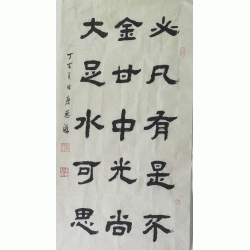 凡有是不
金廿中光尚
大足水可思
丁酉